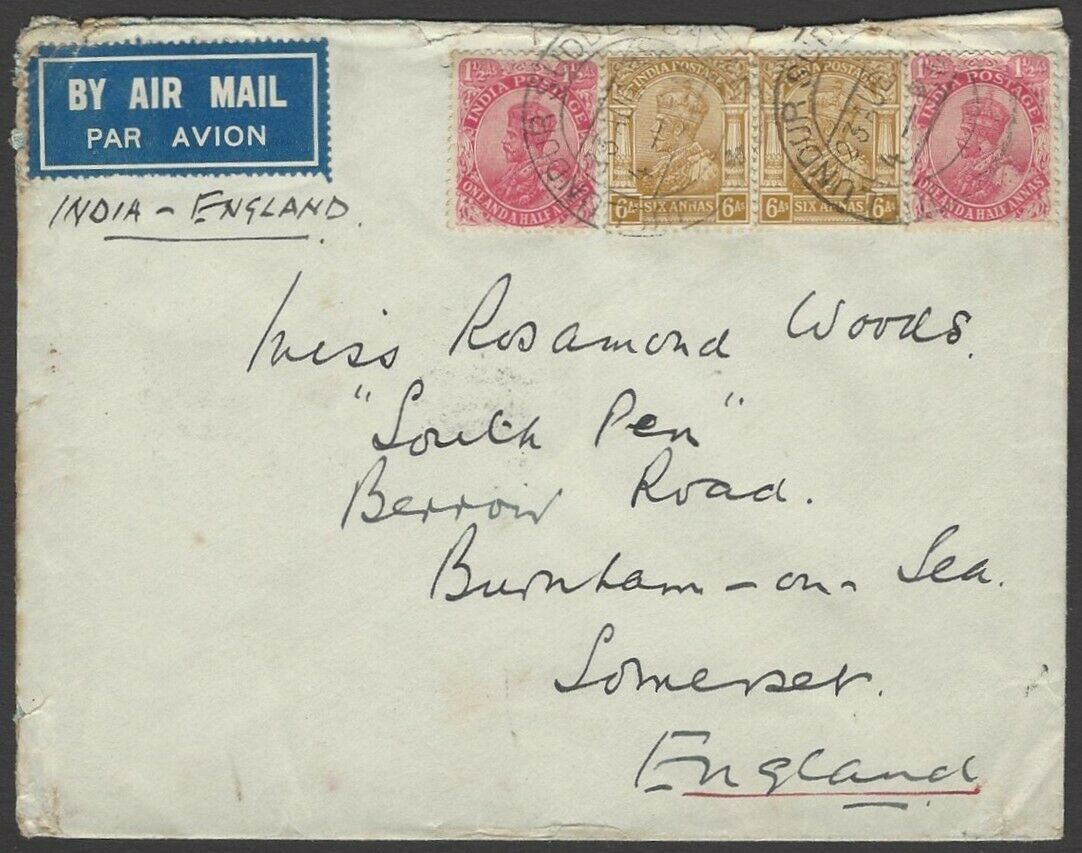 BY AIR MAIL
PAR AVION
INDIA – ENGLAND.
1½As 1½As
INDIA POSTAGE
ONE AND A HALF ANNAS
INDIA POSTAGE
6As SIX ANNAS 6As
INDIA POSTAGE
6As SIX ANNAS 6As
1½As
INDIA POSTAGE
ONE AND A HALF ANNAS
Miss Rosamond Woods.
"South Pen"
Berrow Road.
Burnham-on-Sea.
Somerset.
England